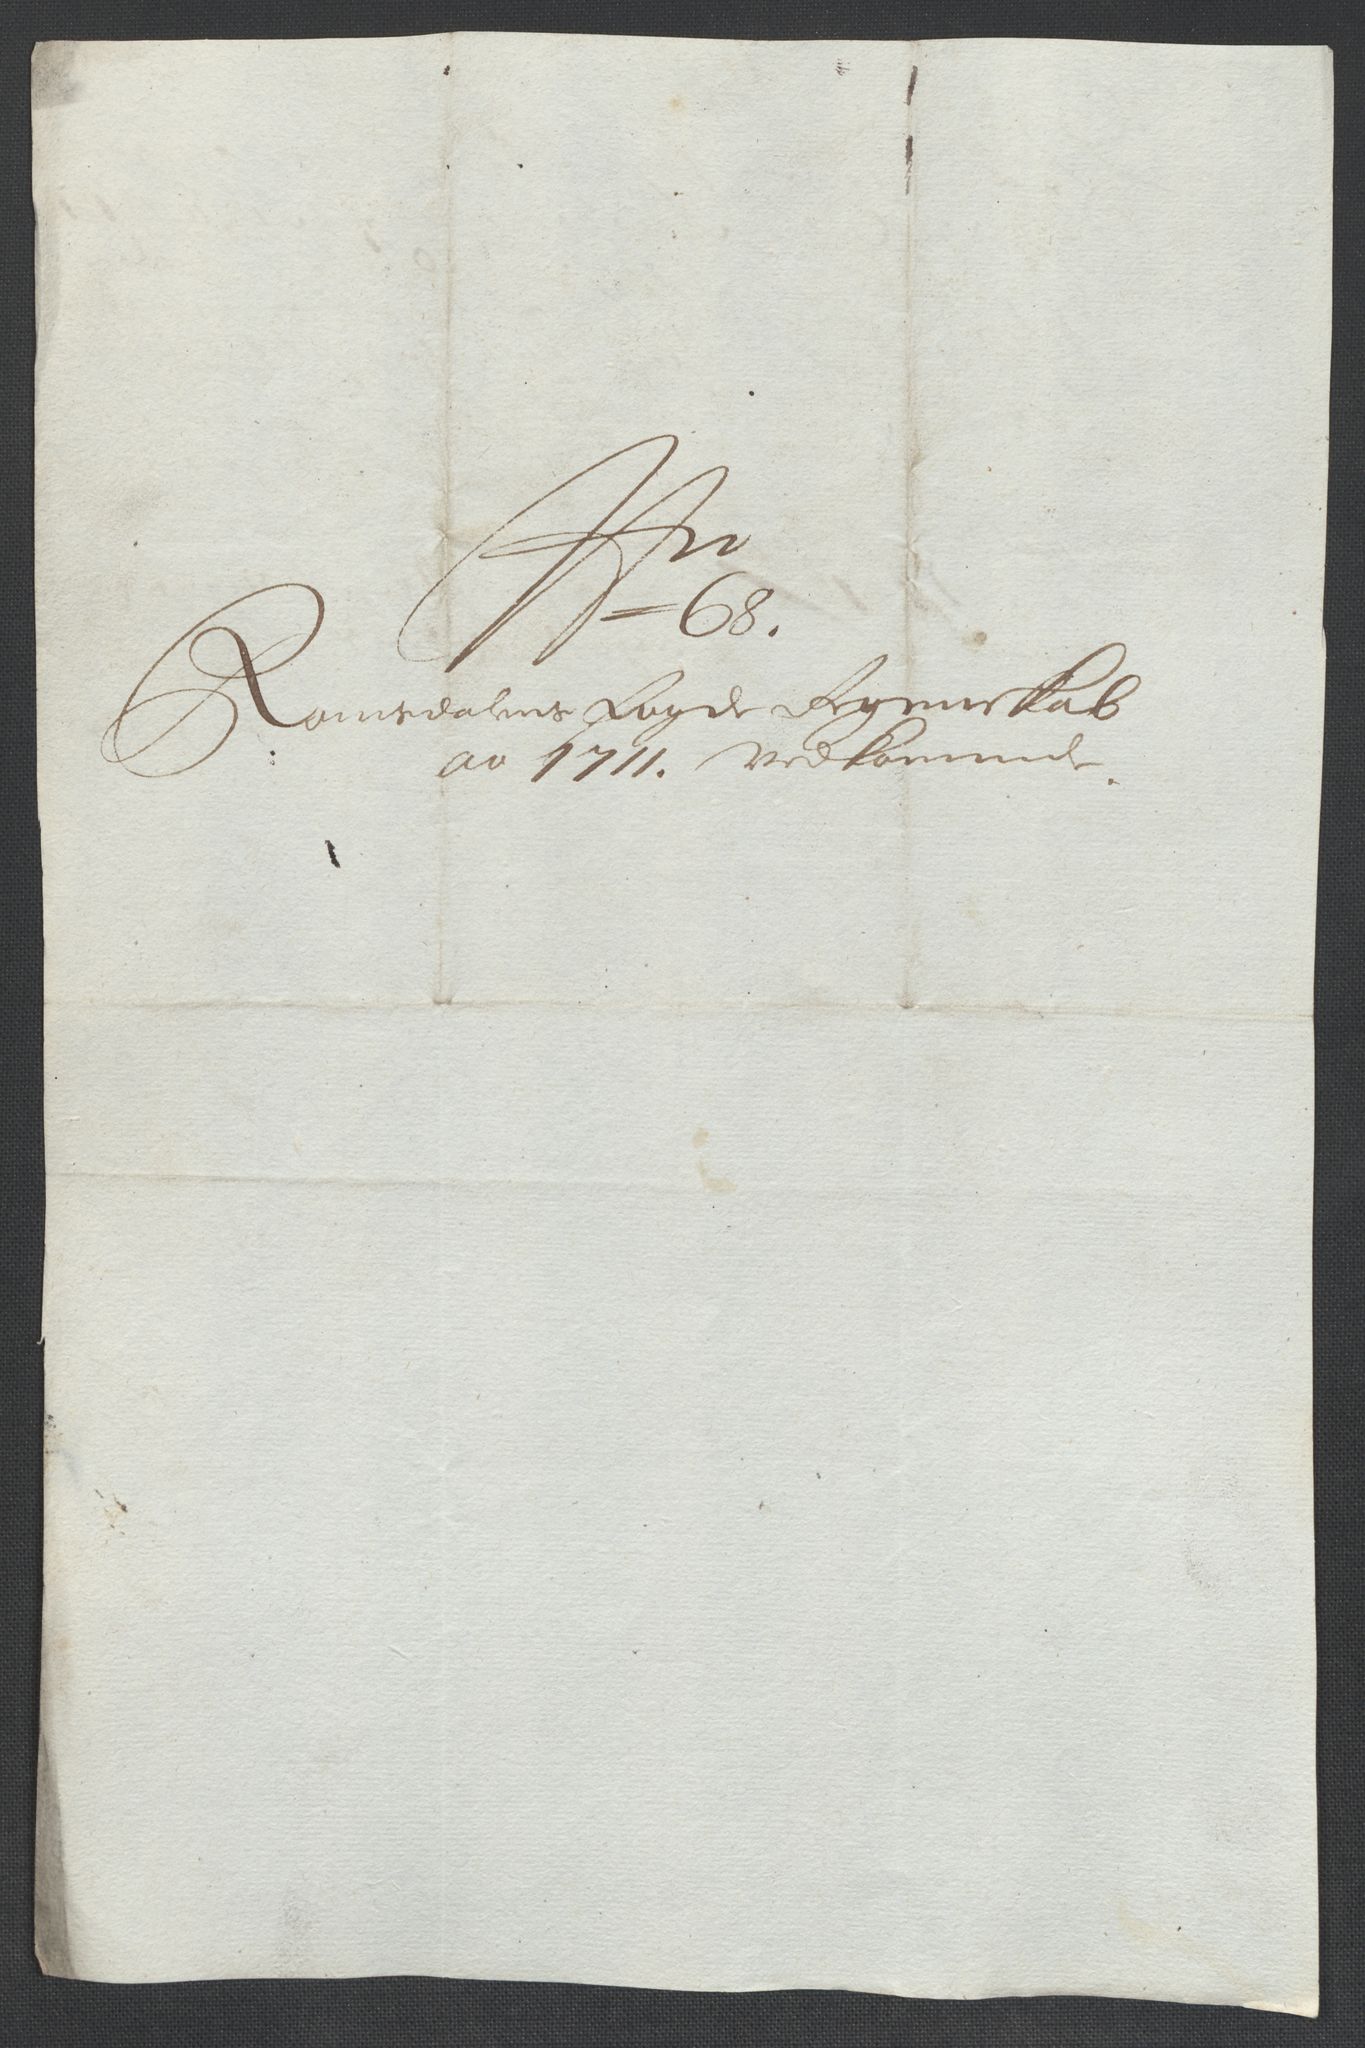 No
68.
Romsdalens Fogde Regenskab
ao 1711. vedkommende.